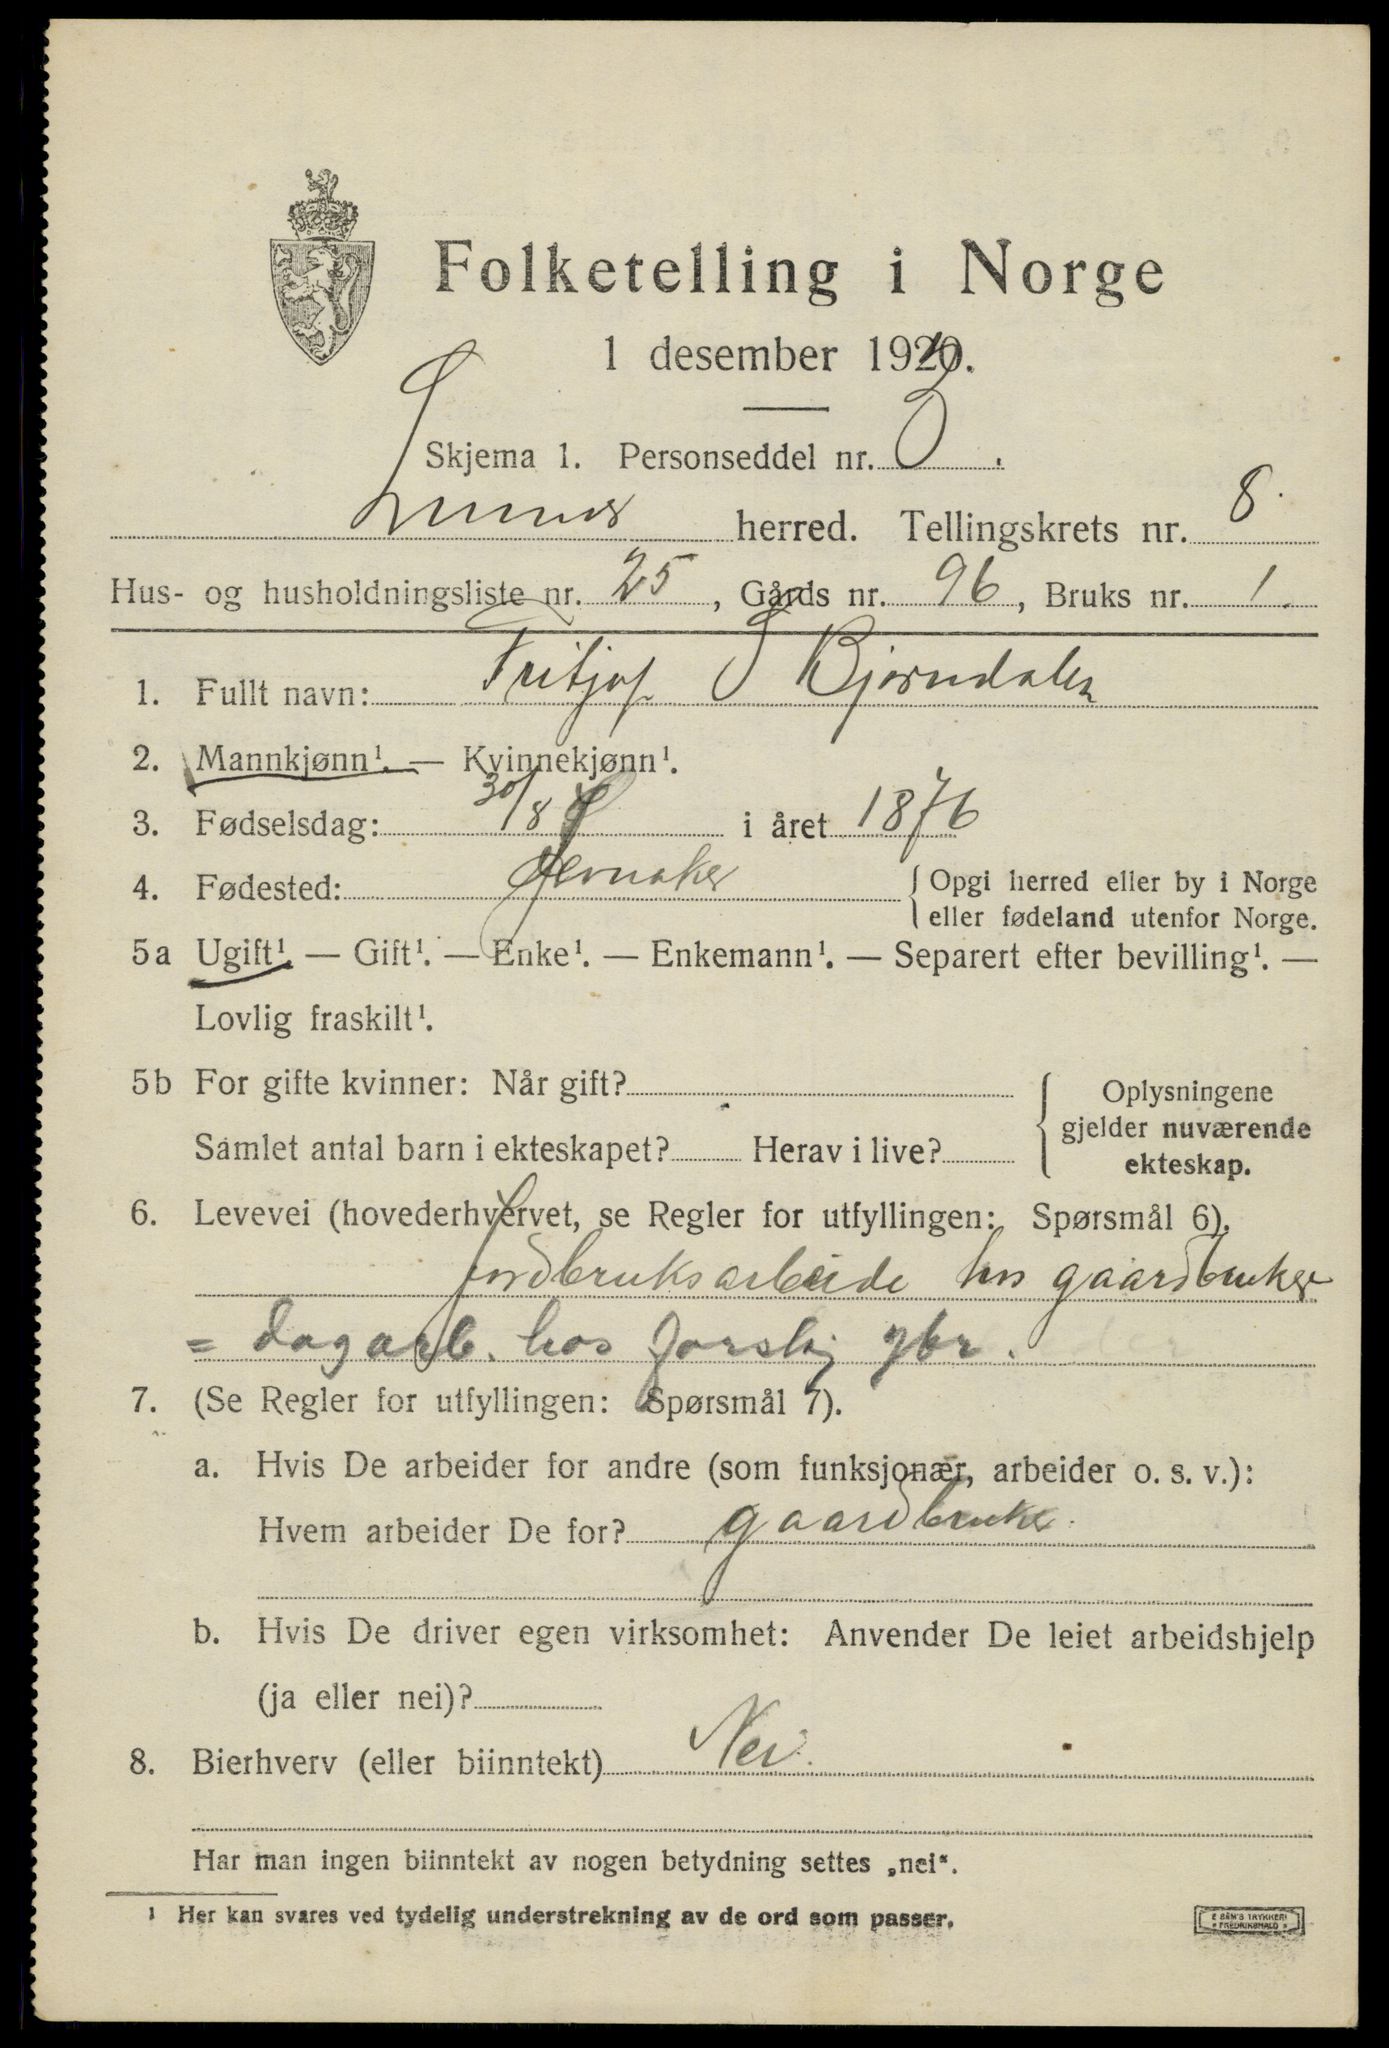 Folketelling i Norge
1 desember 1920.
Skjema 1. Personseddel nr. 3.
Lunner herred. Tellingskrets nr. 8.
Hus- og husholdningsliste nr. 25, Gårds nr. 96, Bruks nr. 1.
1. Fullt navn: Fritjof Bjørndalen
2. Mannkjønn¹. — Kvinnekjønn¹.
3. Fødselsdag: 30/8 i året 1876
4. Fødested: Jevnaker { Opgi herred eller by i Norge
eller fødeland utenfor Norge.
5a Ugift¹. — Gift¹. — Enke¹. — Enkemann¹. — Separert efter bevilling¹. —
Lovlig fraskilt¹.
5b For gifte kvinner: Når gift?
Samlet antal barn i ekteskapet? Herav i live?
{ Oplysningene
gjelder nuværende
ekteskap.
6. Levevei (hovederhvervet, se Regler for utfyllingen: Spørsmål 6).
Jordbruksarbeide hos gaardbruker
= dagarb. hos forskj gbr.
7. (Se Regler for utfyllingen: Spørsmål 7).
a. Hvis De arbeider for andre (som funksjonær, arbeider o. s. v.):
Hvem arbeider De for? gaardbruker.
b. Hvis De driver egen virksomhet: Anvender De leiet arbeidshjelp
(ja eller nei)?
8. Bierhverv (eller biinntekt) Nei.
Har man ingen biinntekt av nogen betydning settes „nei“.
¹ Her kan svares ved tydelig understrekning av de ord som passer.
E SEM'S TRYKKERI
FREDRIKSHALD